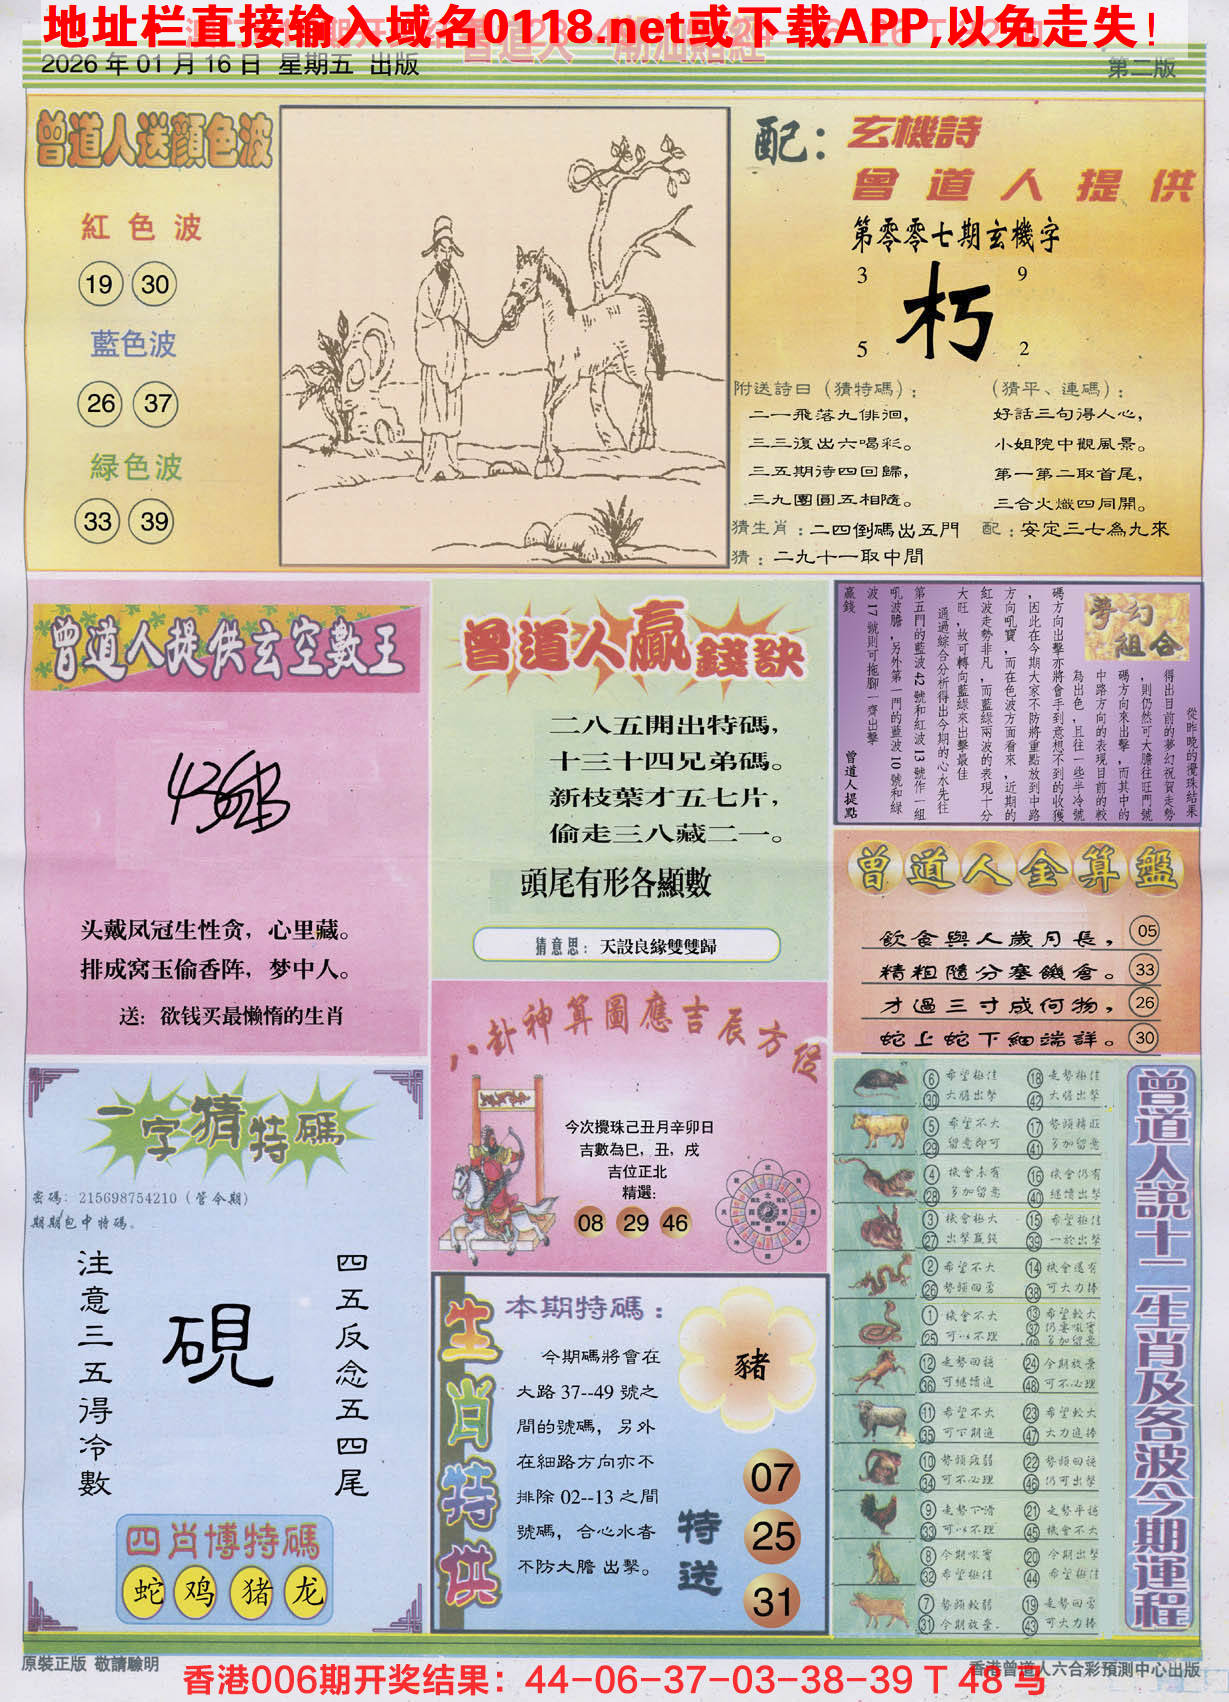 地址栏直接输入域名0118.net或下载APP,以免走失!
2026 年 01 月 16 日 星期五 出版
第二版
曾道人送顏色波
紅色波
19 30
藍色波
26 37
緑色波
33 39
配：
玄機詩
曾道人提供
第零零七期玄機字
3 9
朽
5 2
附送詩曰（猜特碼）：
二一飛落九俳徊，
三三復出六喝彩。
三五期待四回歸，
三九團圓五相隨。
（猜平、連碼）：
好話三句得人心，
小姐院中觀風景。
第一第二取首尾，
三合火熾四同開。
猜生肖：二四倒碼出五門
配：安定三七為九來
猜：二九十一取中間
曾道人提供玄空數王
头戴凤冠生性贪，心里藏。
排成窝玉偷香阵，梦中人。
送：欲钱买最懒惰的生肖
曾道人贏錢訣
二八五開出特碼，
十三十四兄弟碼。
新枝葉才五七片，
偷走三八藏二一。
頭尾有形各顯數
猜意思：天設良緣雙雙歸
夢幻組合
從昨晚的攪珠結果
得出目前的夢幻祝賀走勢
，則仍然可大膽往旺門號
碼方向來出擊，而其中的
中路方向的表現目前的較
為出色，且往一些半冷號
碼方向出擊亦將會手到意想不到的收獲
，因此在今期大家不防將重點放到中路
方向吼寶，而在色波方面看來，近期的
紅波走勢非凡，而藍綠兩波的表現十分
大旺，故可轉向藍綠來出擊最佳
通過綜合分析得出今期的心水先往
第五門的藍波 42 號和紅波 13 號作一組
吼波膽，另外第一門的藍波 10 號和綠
波 17 號則可拖腳一齊出擊
贏錢
曾道人提點
曾道人金算盤
飲食與人歲月長，05
精粗隨分塞饑倉。33
才過三寸成何物，26
蛇上蛇下細端詳。30
八卦神算圖應吉辰方位
今次攪珠己丑月辛卯日
吉數為巳，丑，戌
吉位正北
精選：
08 29 46
一字猜特碼
密碼：215698754210（管令期）
期期包中特碼。
注意三五得冷數
硯
四五反念五四尾
四肖博特碼
蛇 鸡 豬 龙
生肖特供
本期特碼：
今期碼將會在
大路 37--49 號之
間的號碼，另外
在細路方向亦不
排除 02--13 之間
號碼，合心水者
不防大膽 出擊。
豬
特送
07
25
31
曾道人説十二生肖及各波今期運程
6 希望極佳 18 走勢極佳
30 大膽出擊 42 大膽出擊
5 希望不大 17 勢頭轉旺
29 留意即可 41 多加留意
4 機會未有 16 機會仍有
28 多加留意 40 繼續出擊
3 機會極大 15 希望極佳
27 出擊贏錢 39 一於出擊
2 希望不大 14 機會還有
26 勢頭回勇 38 可大力捧
1 機會不大 13 希望較大
25 可以不理 37 仍要吼實
多加留意
12 走勢回穩 24 今期放棄
36 可繼續追 48 可不必理
11 希望不大 23 希望較大
35 可下期追 47 大力追捧
10 勢頭疲弱 22 勢頭回穩
34 可不必理 46 仍可出擊
9 走勢下滑 21 走勢平穩
33 可以不理 45 機會不大
8 今期吼實 20 今期出擊
32 希望極佳 44 希望極佳
7 勢頭較弱 19 走勢回勇
31 今期放棄. 43 可大力捧
原裝正版 敬請驗明
香港曾道人六合彩預測中心出版
香港006期开奖结果：44-06-37-03-38-39 T 48 马